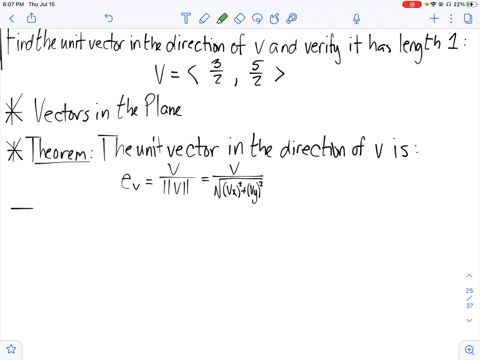 6:07 PM Thu Jul 15
22%
Find the unit vector in the direction of V and verify it has length 1:
V = < 3/2 , 5/2 >
* Vectors in the Plane
* Theorem: The unit vector in the direction of v is:
e_v = V/||V|| = V/√((Vx)²+(Vy)²)
25
/
37